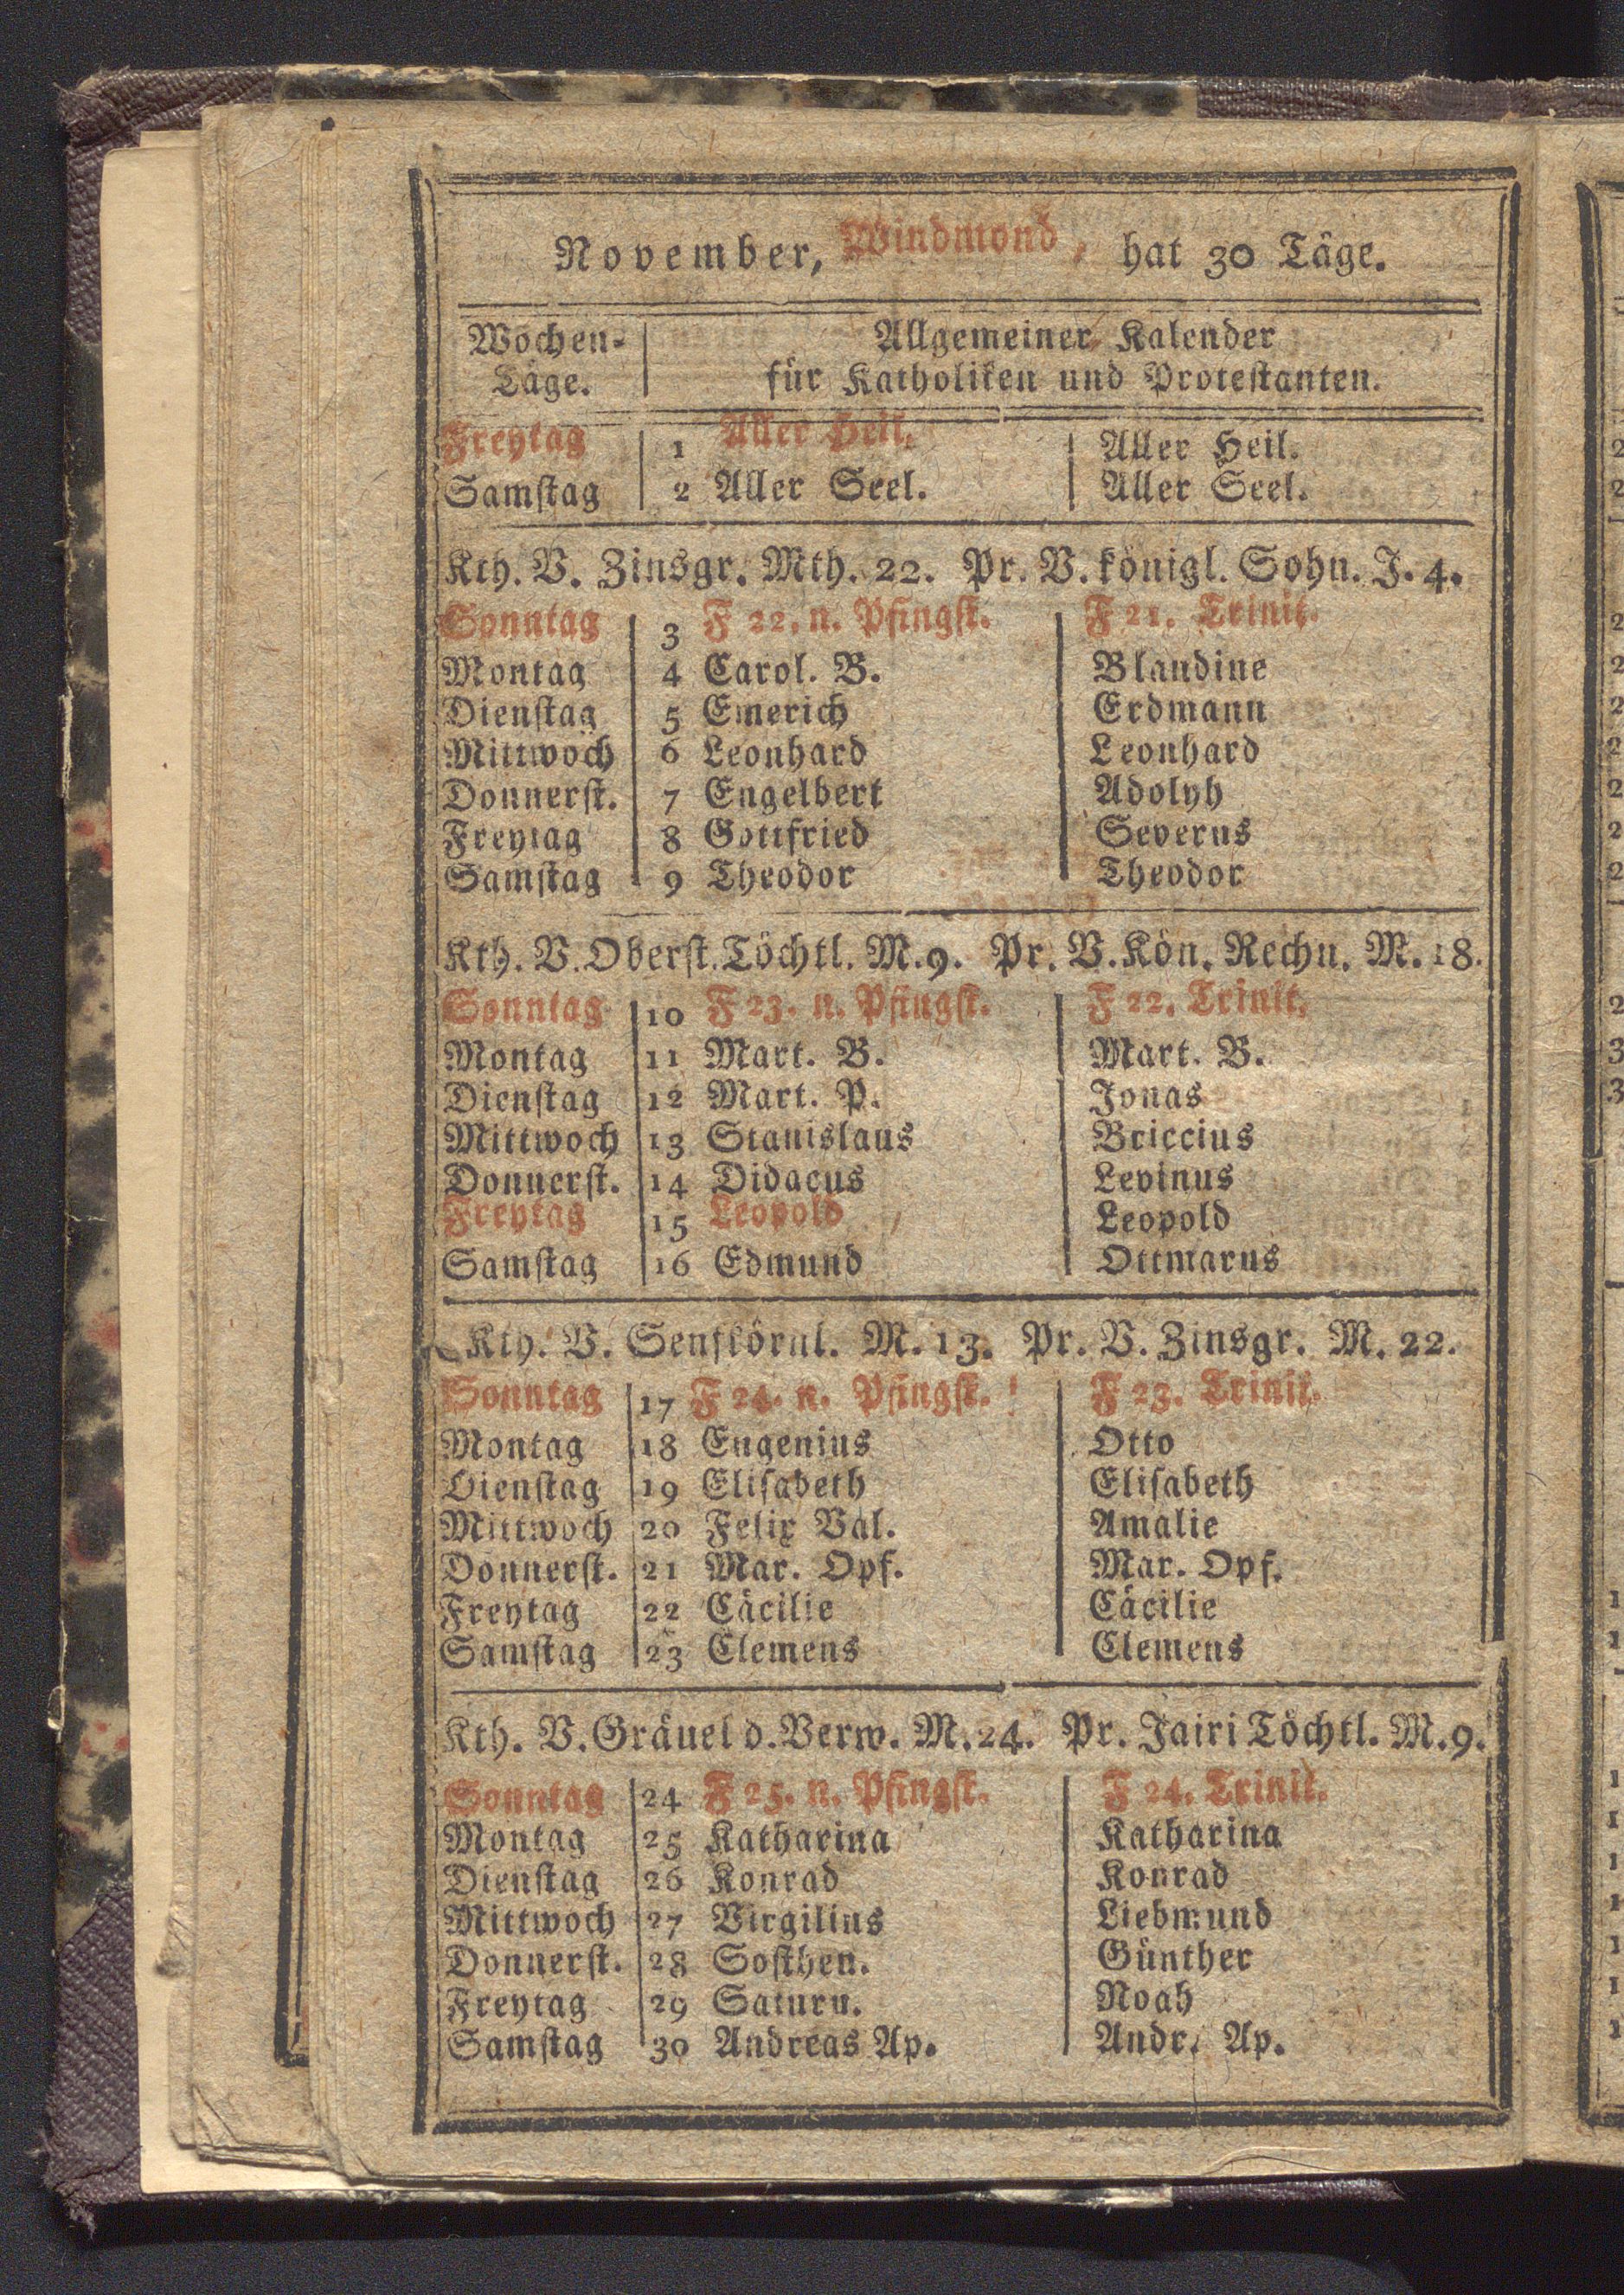 November, Windmond, hat 30 Täge.
Wochen- Allgemeiner Kalender
Täge. für Katholiken und Protestanten.
Freytag 1 Aller Heil. Aller Heil.
Samstag 2 Aller Seel. Aller Seel.
Kth. V. Zinsgr. Mth. 22. Pr. V. königl. Sohn. J. 4.
Sonntag 3 F 22. n. Pfingst. F 21. Trinit.
Montag 4 Carol. B. Blandine
Dienstag 5 Emerich Erdmann
Mittwoch 6 Leonhard Leonhard
Donnerst. 7 Engelbert Adolph
Freytag 8 Gottfried Severus
Samstag 9 Theodor Theodor
Kth. V. Oberst. Töchtl. M. 9. Pr. V. Kön. Rechn. M. 18.
Sonntag 10 F 23. n. Pfingst. F 22. Trinit.
Montag 11 Mart. B. Mart. B.
Dienstag 12 Mart. P. Jonas
Mittwoch 13 Stanislaus Briccius
Donnerst. 14 Didacus Levinus
Freytag 15 Leopold Leopold
Samstag 16 Edmund Ottmarus
Kth. V. Senfkörnl. M. 13. Pr. V. Zinsgr. M. 22.
Sonntag 17 F 24. n. Pfingst. F 23. Trinit.
Montag 18 Eugenius Otto
Dienstag 19 Elisabeth Elisabeth
Mittwoch 20 Felix Val. Amalie
Donnerst. 21 Mar. Opf. Mar. Opf.
Freytag 22 Cäcilie Cäcilie
Samstag 23 Clemens Clemens
Kth. V. Gräuel d. Verw. M. 24. Pr. Jairi Töchtl. M. 9.
Sonntag 24 F 25. n. Pfingst. F 24. Trinit.
Montag 25 Katharina Katharina
Dienstag 26 Konrad Konrad
Mittwoch 27 Virgilius Liebmund
Donnerst. 28 Sosthen. Günther
Freytag 29 Saturn. Noah
Samstag 30 Andreas Ap. Andr. Ap.